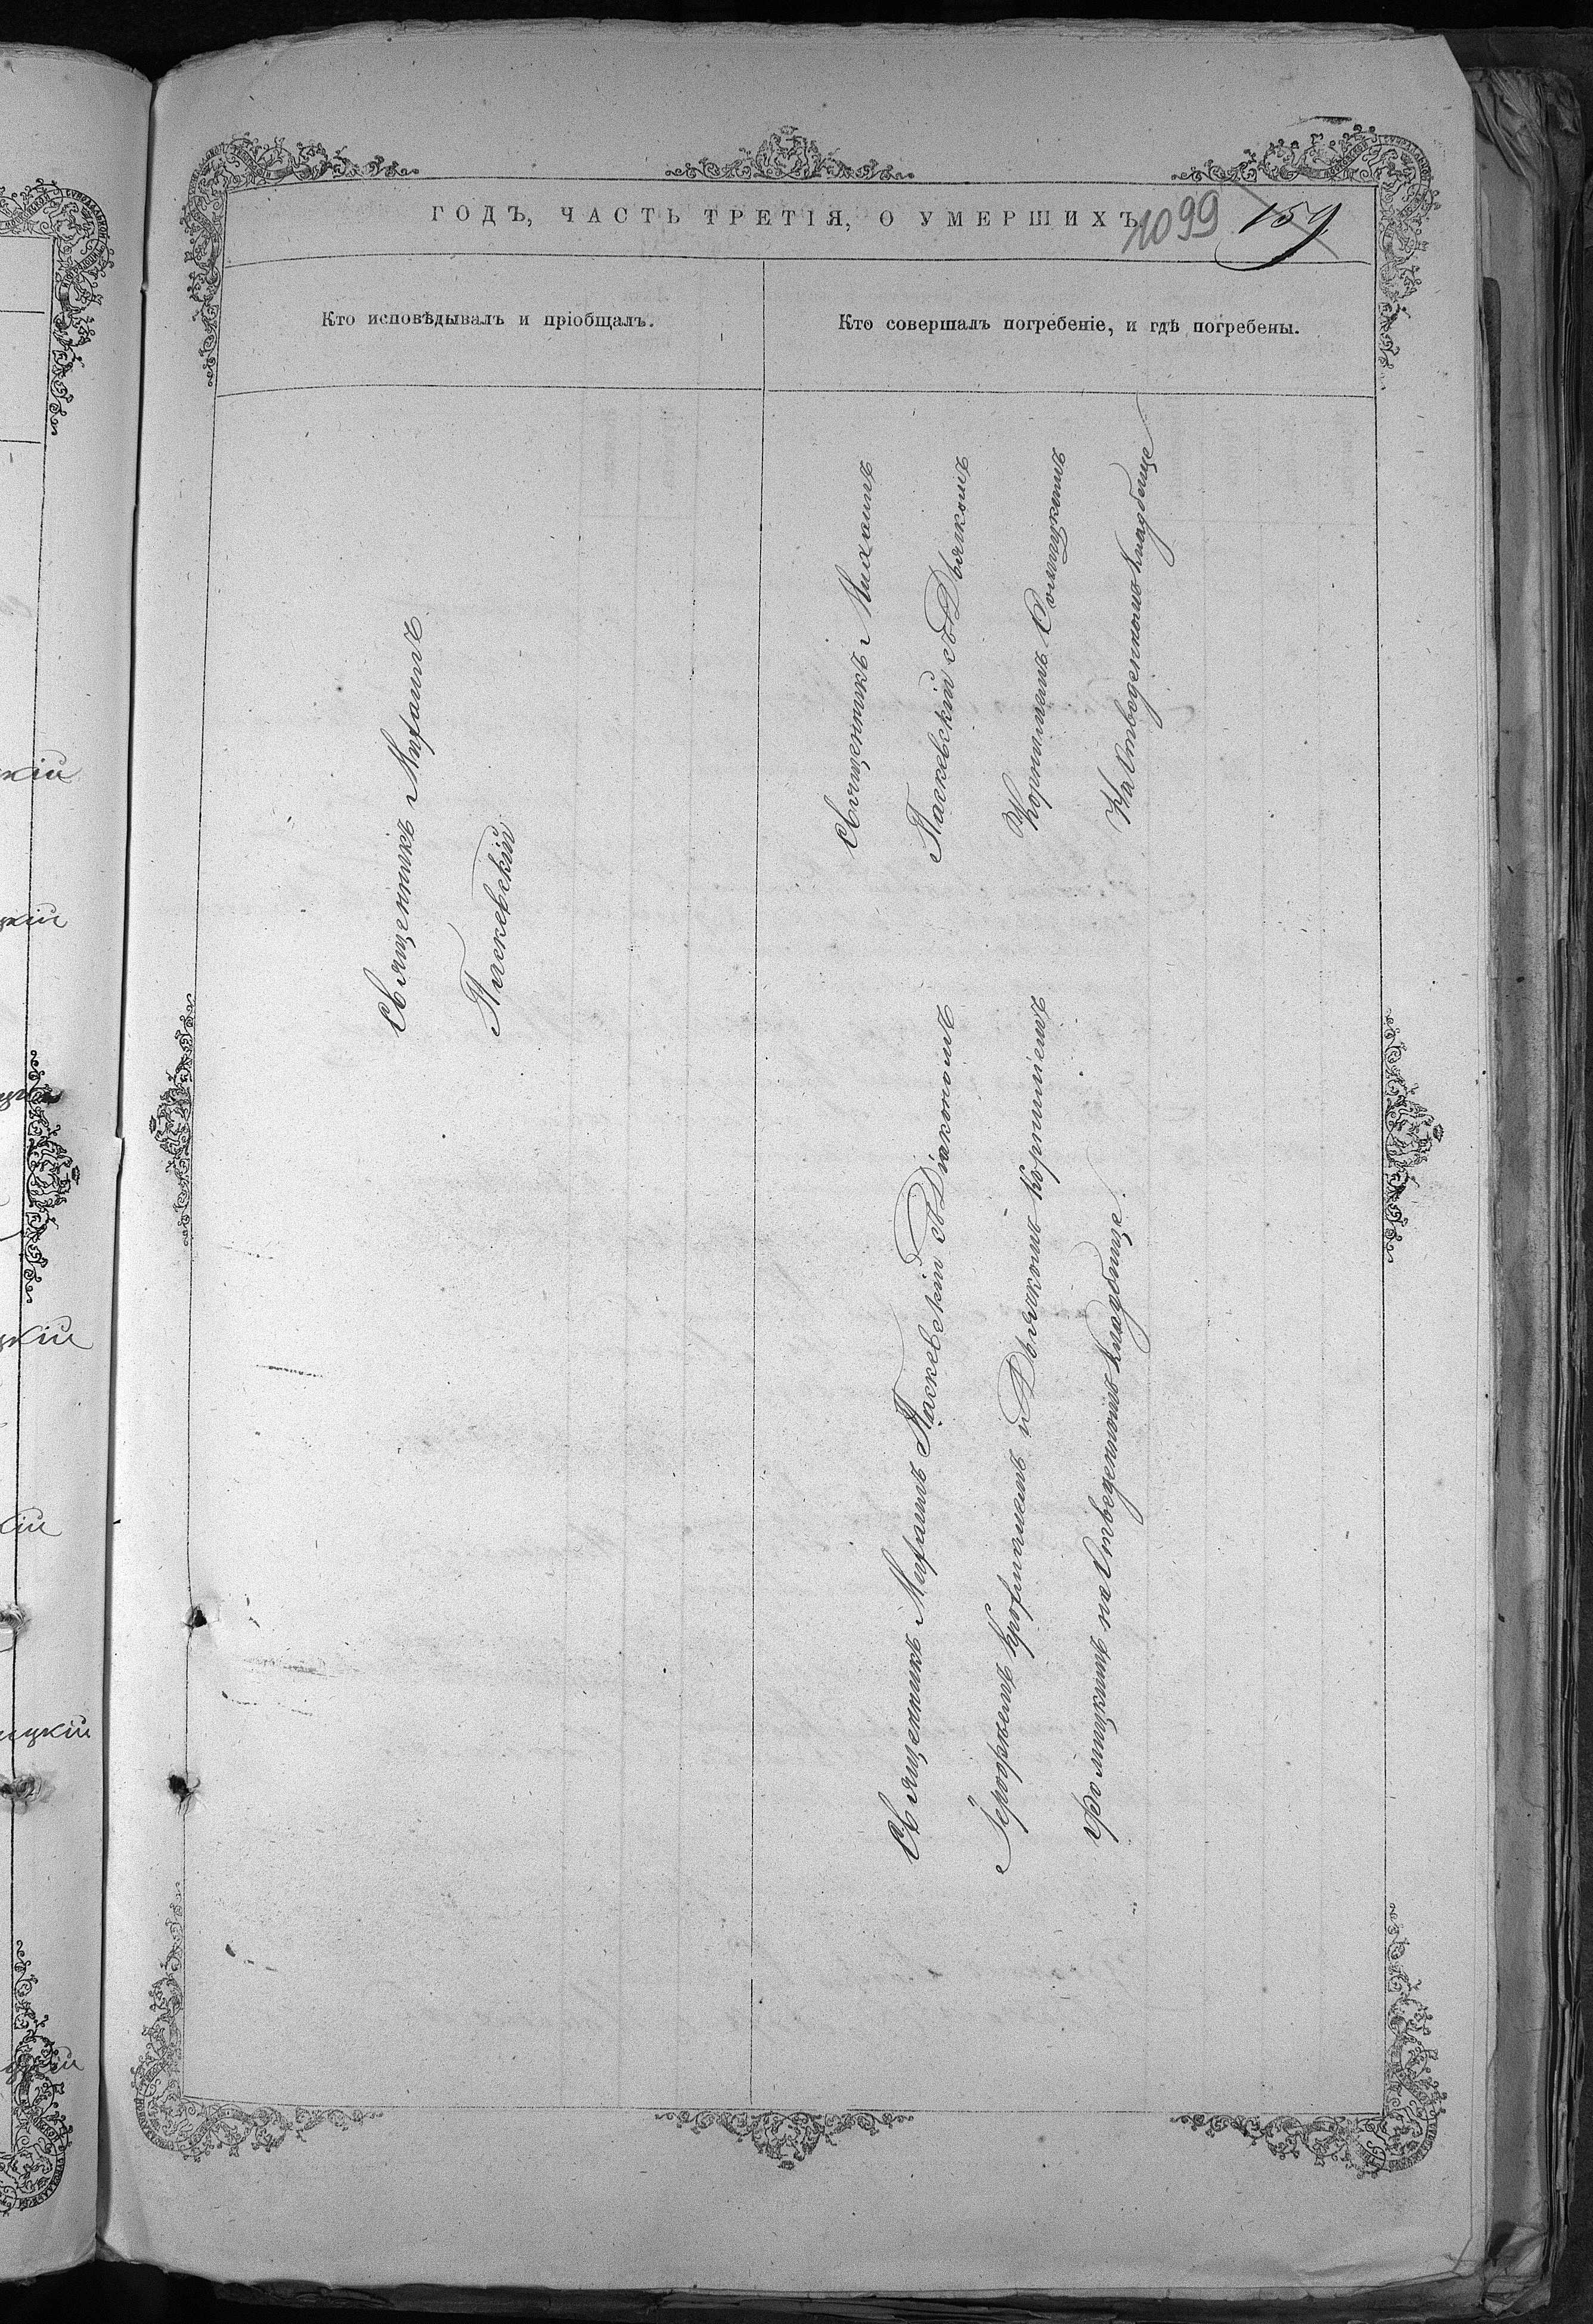 ГОДЪ, ЧАСТЬ ТРЕТІЯ, О УМЕРШИХЪ
1099 159
Кто исповѣдывалъ и пріобщалъ.
Кто совершалъ погребеніе, и гдѣ погребены.
Священникъ Михаилъ
Паскевскій
Священникъ Михаилъ
Паскевскій съ Дьякомъ
На Отведенномъ кладбище
Священникъ Михаилъ Паскевскій съ Діакономъ
и Дьякомъ Корнилiемъ
на Отведенномъ кладбище.
кій
цкій
цкій
кій
ицкій